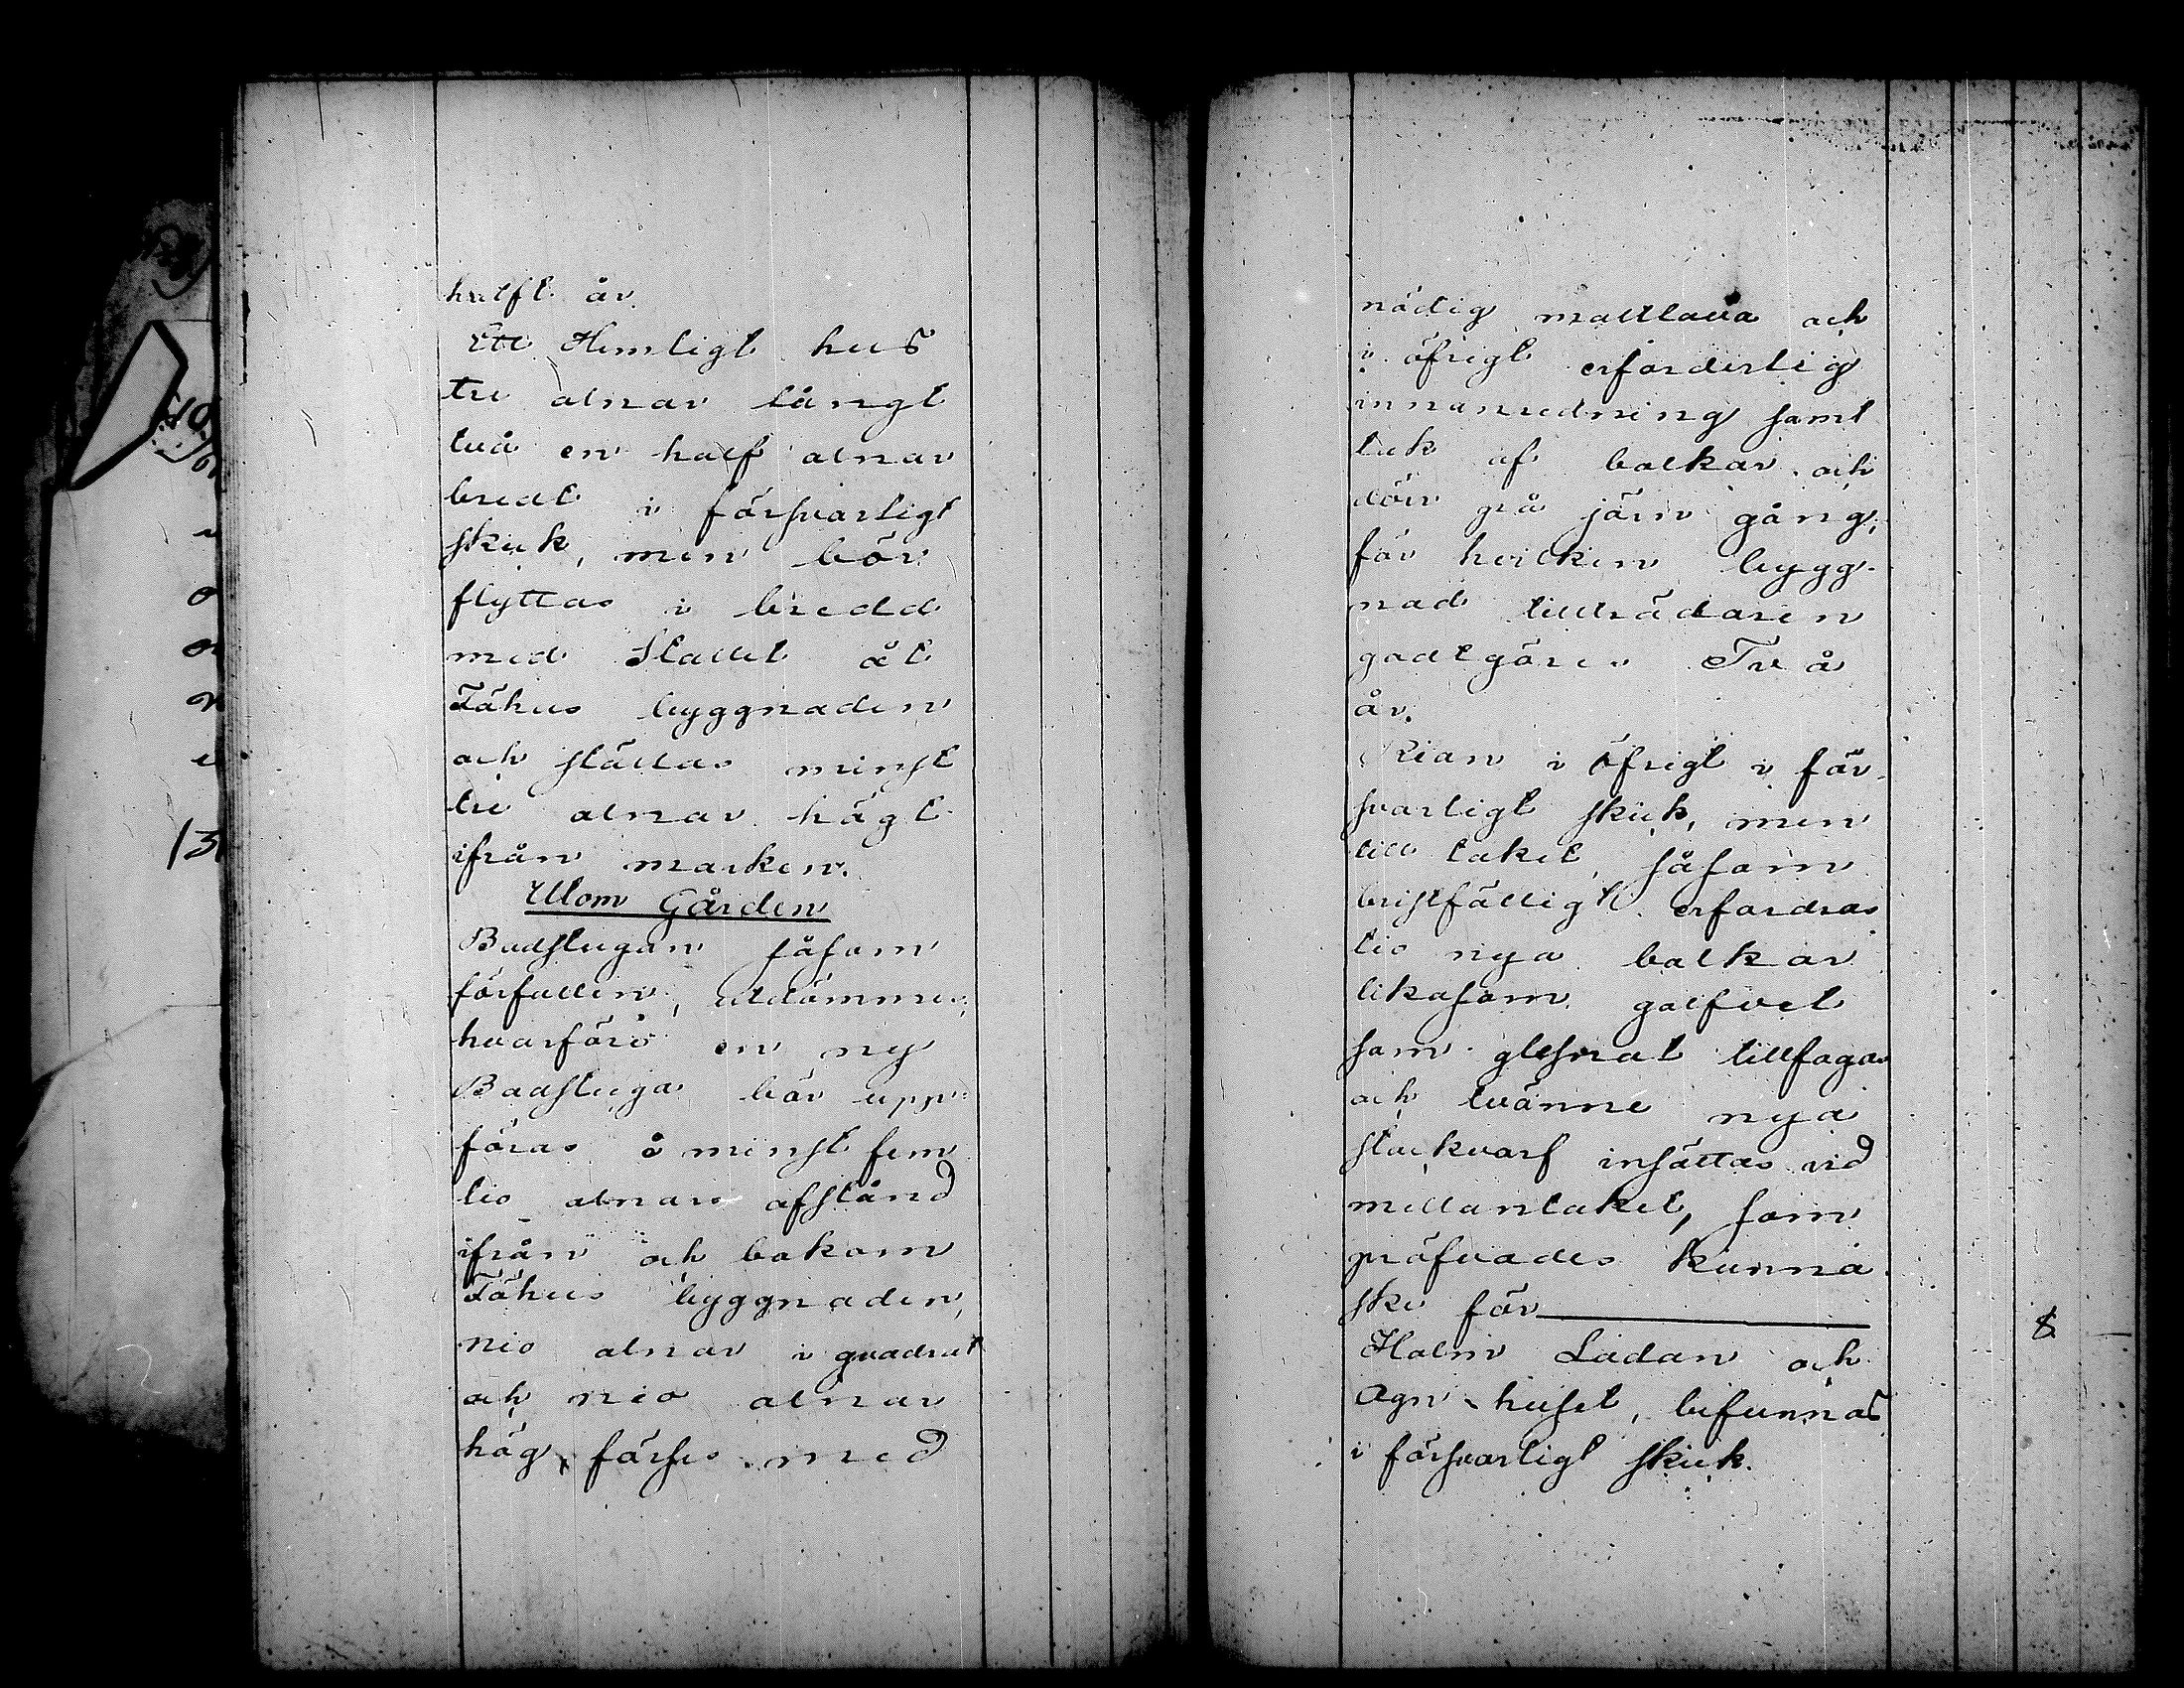 halft år.
Ett Hemligt hus
tre alnar långt
två en half alnar
bredt i försvarligt
skick, men bör
flyttas i bredd
med Stallet åt
Fähus byggnaden
och ställas minst
tre alnar högt
ifrån marken.
Utom Gården
Badstugan såsom
förfallen, utdömmes,
hvarföre en ny
Badstuga bör upp-
föras å minst fem
tio alnars afstånd
ifrån och bakom
Fähus byggnaden,
nio alnar i quadrat
och nio alnar
hög, förses med
nödig maltlava och
i öfrigt erforderlig
innanredning samt
tak af balkar och
dörr på järn gång,
för hvilken bygg-
nad tillträdaren
godtgöres Två
år.
Rian i öfrigt i för-
svarligt skick, men
till taket, såsom
bristfälligt erfordras
tio nya balkar
likasom golfvet
som glesnat tillfogas
och tvänne nya
stockvarf insättas vid
mellantaket, som
pröfvades kunna
ske för
8
Halm Ladan och
Agn huset, befunnos
i försvarligt skick.